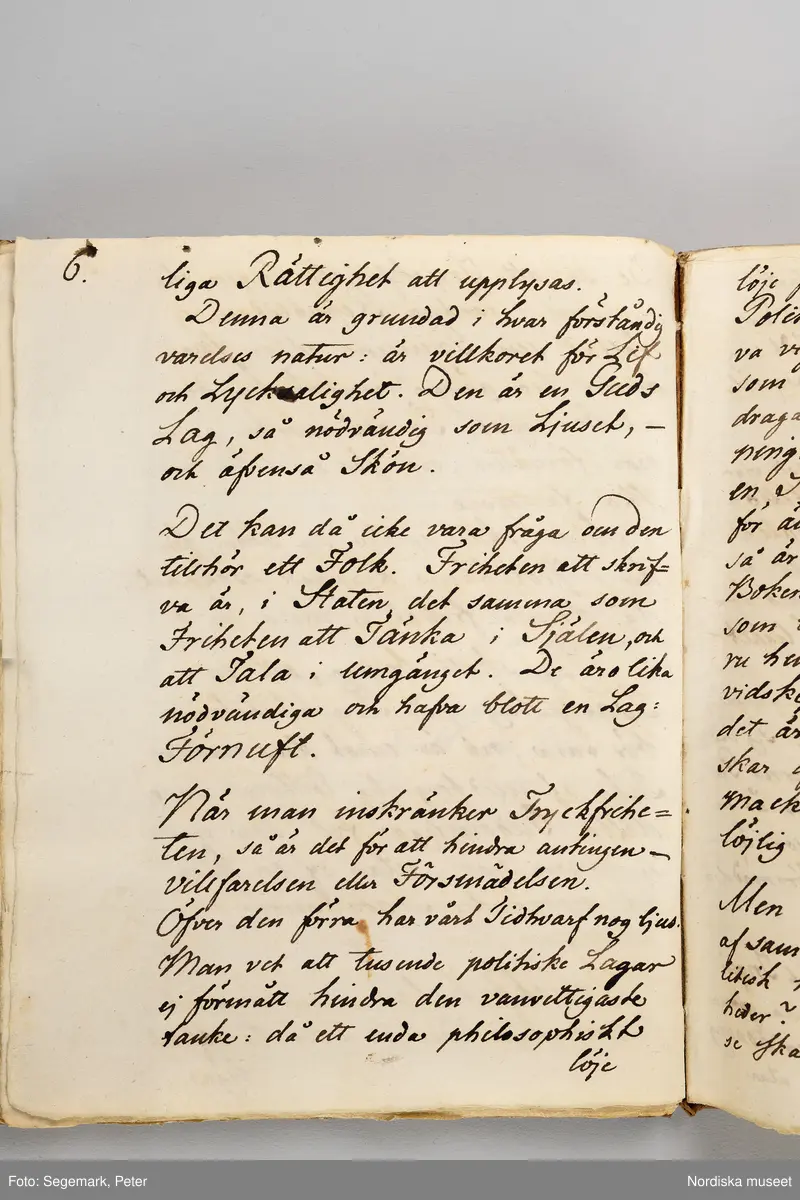 6.
liga Rättighet att upplysas.
Denna är grundad i hvar förståndig
varelses natur: är villkoret för Lif
och Lycksalighet. Den är en Guds
Lag, så nödvändig som Ljuset, –
och äfvenså Skön.
Det kan då icke vara fråga om den
tilhör ett Folk. Friheten att skrif=
va är, i Staten, det samma som
Friheten att Tänka i Själen, och
att Tala i umgänget. De äro lika
nödvändiga och hafva blott en Lag:
Förnuft.
När man inskränker Tryckfrihe=
ten, så är det för att hindra antingen –
villfarelsen eller Försmädelsen.
Öfver den förra har vårt Tidhvarf nog ljus.
Man vet att tusende politiske Lagar
ej förmått hindra den vanvettigaste
tanke: då ett enda philosophiskt
löje
löje
Polit
va
som
draga
ning
en
för
så är
Boken
som
ru
vidske
det är
skar
mack
löjlig
Men
af sam
litisk
heder?
se ska
Foto: Segemark, Peter
Nordiska museet